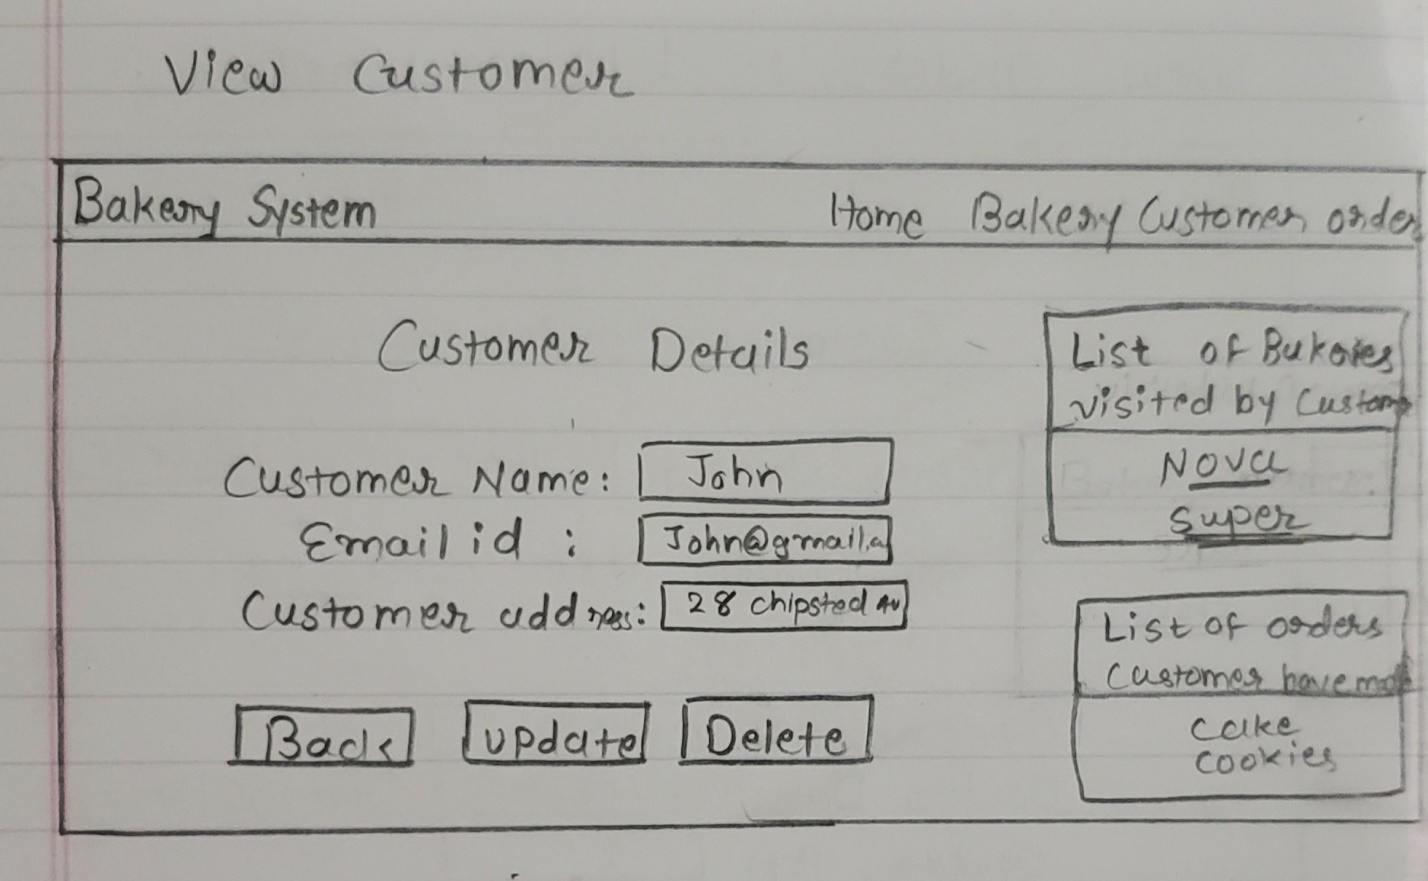 View Customer
Bakery System Home Bakery Customer order
Customer Details
Customer Name: John
Email id : John@gmail.
Customer address: 28 chipsted Av
Back update Delete
List of Bakeries
visited by Custom
Nova
super
List of orders
Customer have made
cake
cookies